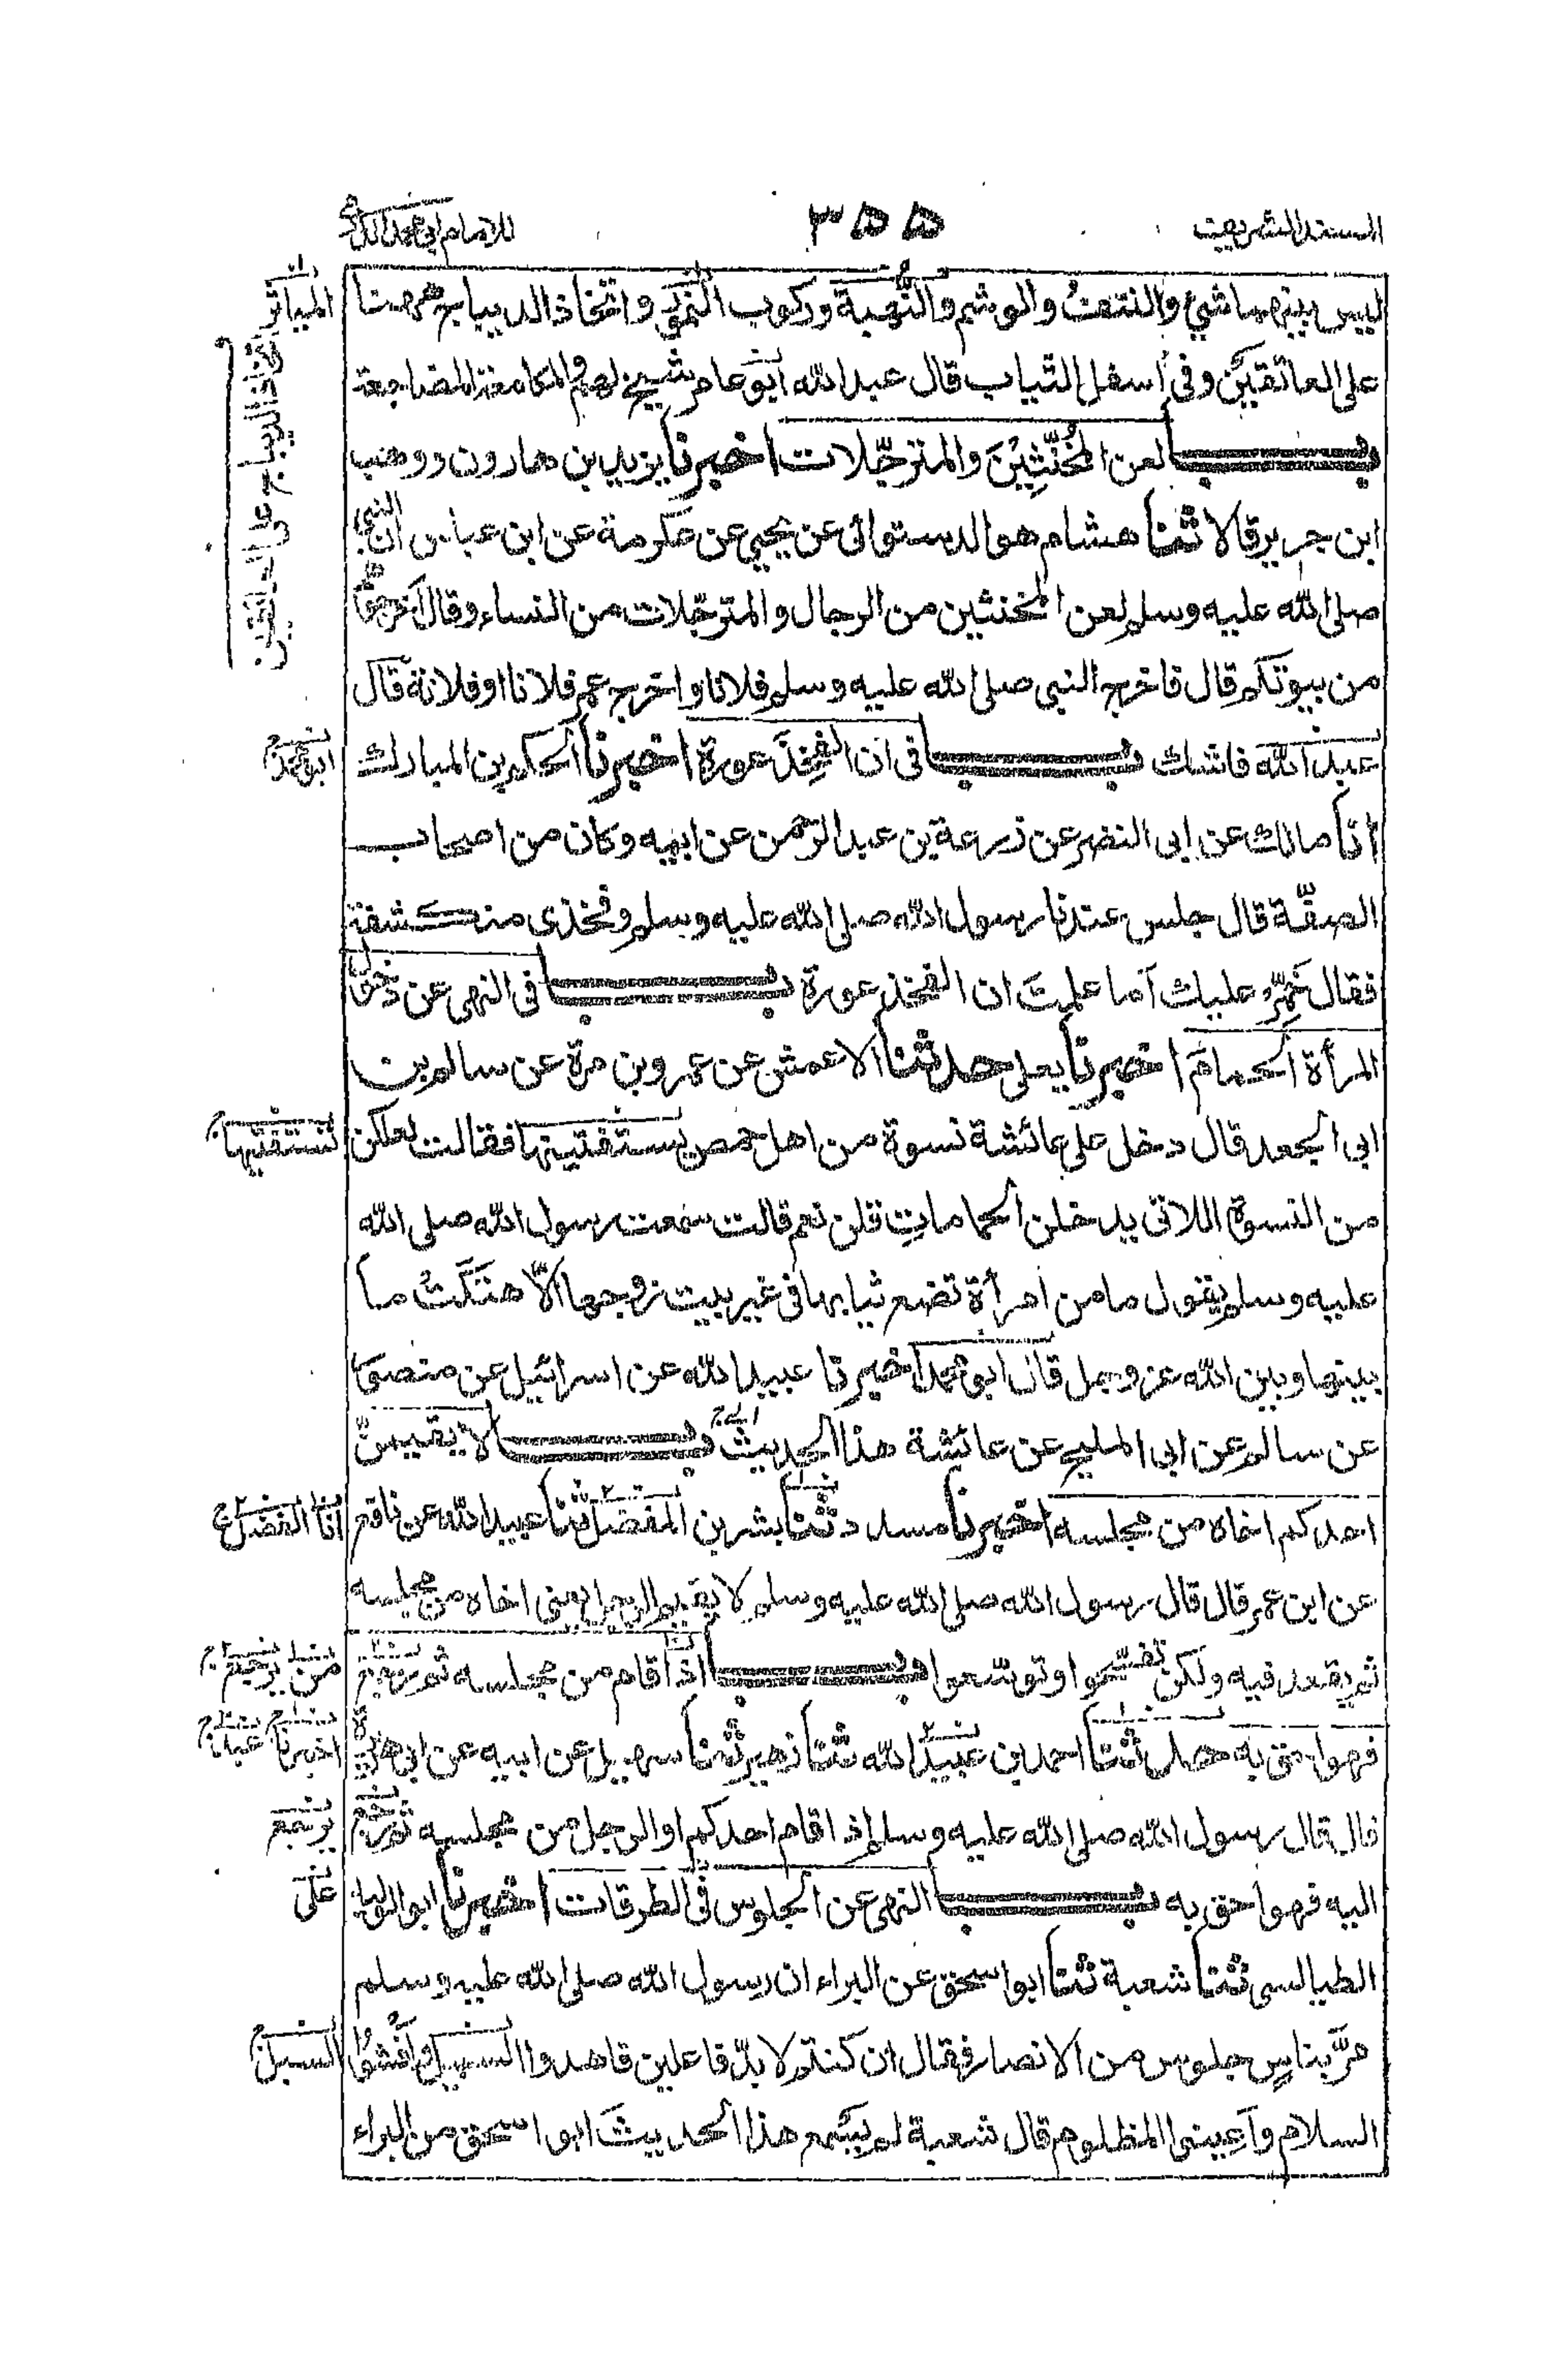 المسند الشريف ٣٥٥ للامام ابى محمد الدارمى
ليس بينهما شئ والنتف والوشم والنهبة وركوب النمور واتخاذ الديباج ههنا
على العاتقين وفى اسفل الثياب قال عبد الله ابو عامر شيخ لهم والمكامعة المضاجعة
باب لعن المُخَنَّثِيْنَ والمترجّلات اخبرنا يزيد بن هارون ووهب
ابن جرير قالا ثنا هشام هو الدستوائى عن يحيى عن عكرمة عن ابن عباس ان النبى
صلى الله عليه وسلم لعن المخنثين من الرجال والمترجّلات من النساء وقال اخرجوهم
من بيوتكم قال فاخرج النبى صلى الله عليه وسلم فلانا واخرج عمر فلانا او فلانة قال
عبد الله فاشك باب فى ان الفخذ عورة اخبرنا الحكم بن المبارك
انا مالك عن ابى النضر عن زرعة بن عبد الرحمن عن ابيه وكان من اصحاب
الصفّة قال جلس عندنا رسول الله صلى الله عليه وسلم وفخذى منكشفة
فقال خَمِّرْ عليك اَما علمتَ ان الفخذ عورة باب فى النهى عن دخول
المرأة الحمام اخبرنا يعلى حدثنا الاعمش عن عمرو بن مرة عن سالم بن
ابى الجعد قال دخل على عائشة نسوة من اهل حمص يستفتينها فقالت لعلكن
من النسوة اللاتى يدخلن الحمامات قلن نعم قالت سمعت رسول الله صلى الله
عليه وسلم يقول ما من امرأة تضع ثيابها فى غير بيت زوجها الّا هتكتْ ما
بينها وبين الله عز وجل قال ابو محمد اخبرنا عبيد الله عن اسرائيل عن منصور
عن سالم عن ابى المليح عن عائشة هذا الحديث باب لا يقيمنّ
احدكم اخاه من مجلسه اخبرنا مسدد ثنا بشر بن المفضل ثنا عبيد الله عن نافع
عن ابن عمر قال قال رسول الله صلى الله عليه وسلم لا يقيم الرجل يعنى اخاه من مجلسه
ثم يقعد فيه ولكن تفسّحوا وتوسّعوا باب اذا قام من مجلسه ثم رجع
فهو احق به حدثنا احمد بن عبيد الله ثنا زهير ثنا سهيل عن ابيه عن ابى هريرة
قال قال رسول الله صلى الله عليه وسلم اذا قام احدكم او الرجل من مجلسه ثم رجع
اليه فهو احق به باب النهى عن الجلوس فى الطرقات اخبرنا ابو الوليد
الطيالسى ثنا شعبة ثنا ابو اسحق عن البراء ان رسول الله صلى الله عليه وسلم
مرّ بناسٍ جلوس من الانصار فقال ان كنتم لا بدّ فاعلين فاهدوا السبيل وافشوا
السلام واَعِينوا المظلوم قال شعبة لم يسمع هذا الحديث ابو اسحق من البراء
المياثر
اتخاذ الديباج على العاتقين
ابو محمد
تستفتيها
انا الفضل
من يرجع
اخبرنا
يرجع
على
السبل